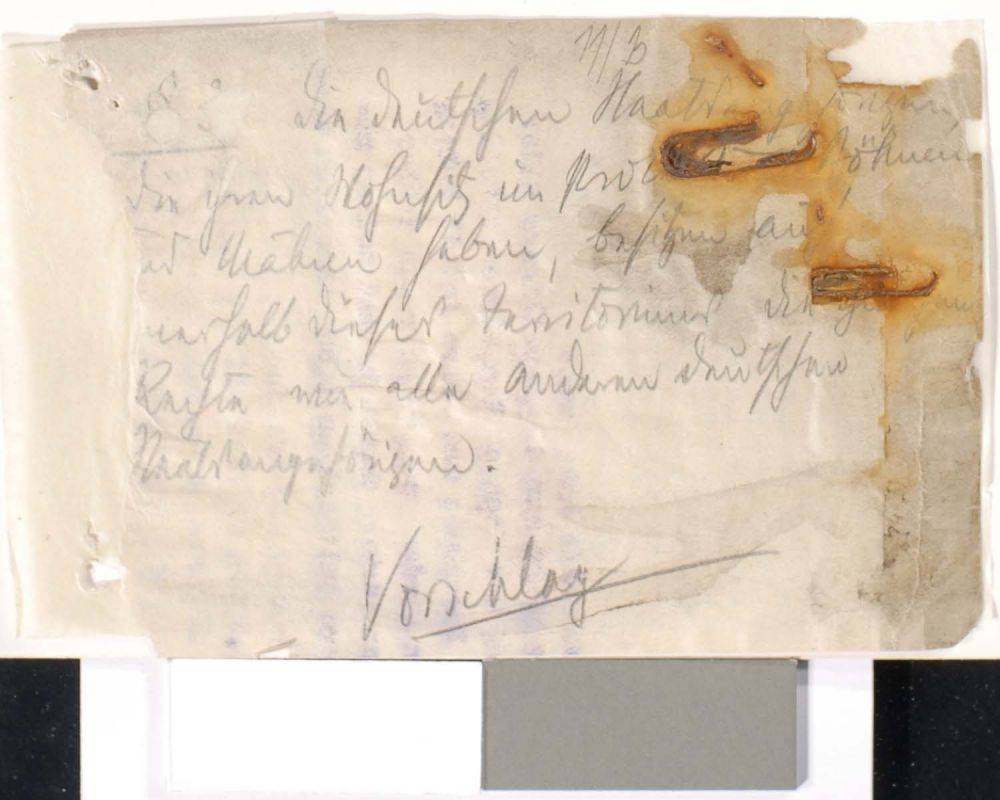 11/3
Die deutschen Staatsangehörigen,
die ihren Wohnsitz im Prot Böhmen
und Mähren haben, besitzen au
nerhalb dieses Territoriums die
Rechte wie alle anderen deutschen
Staatsangehörigen.
Vorschlag